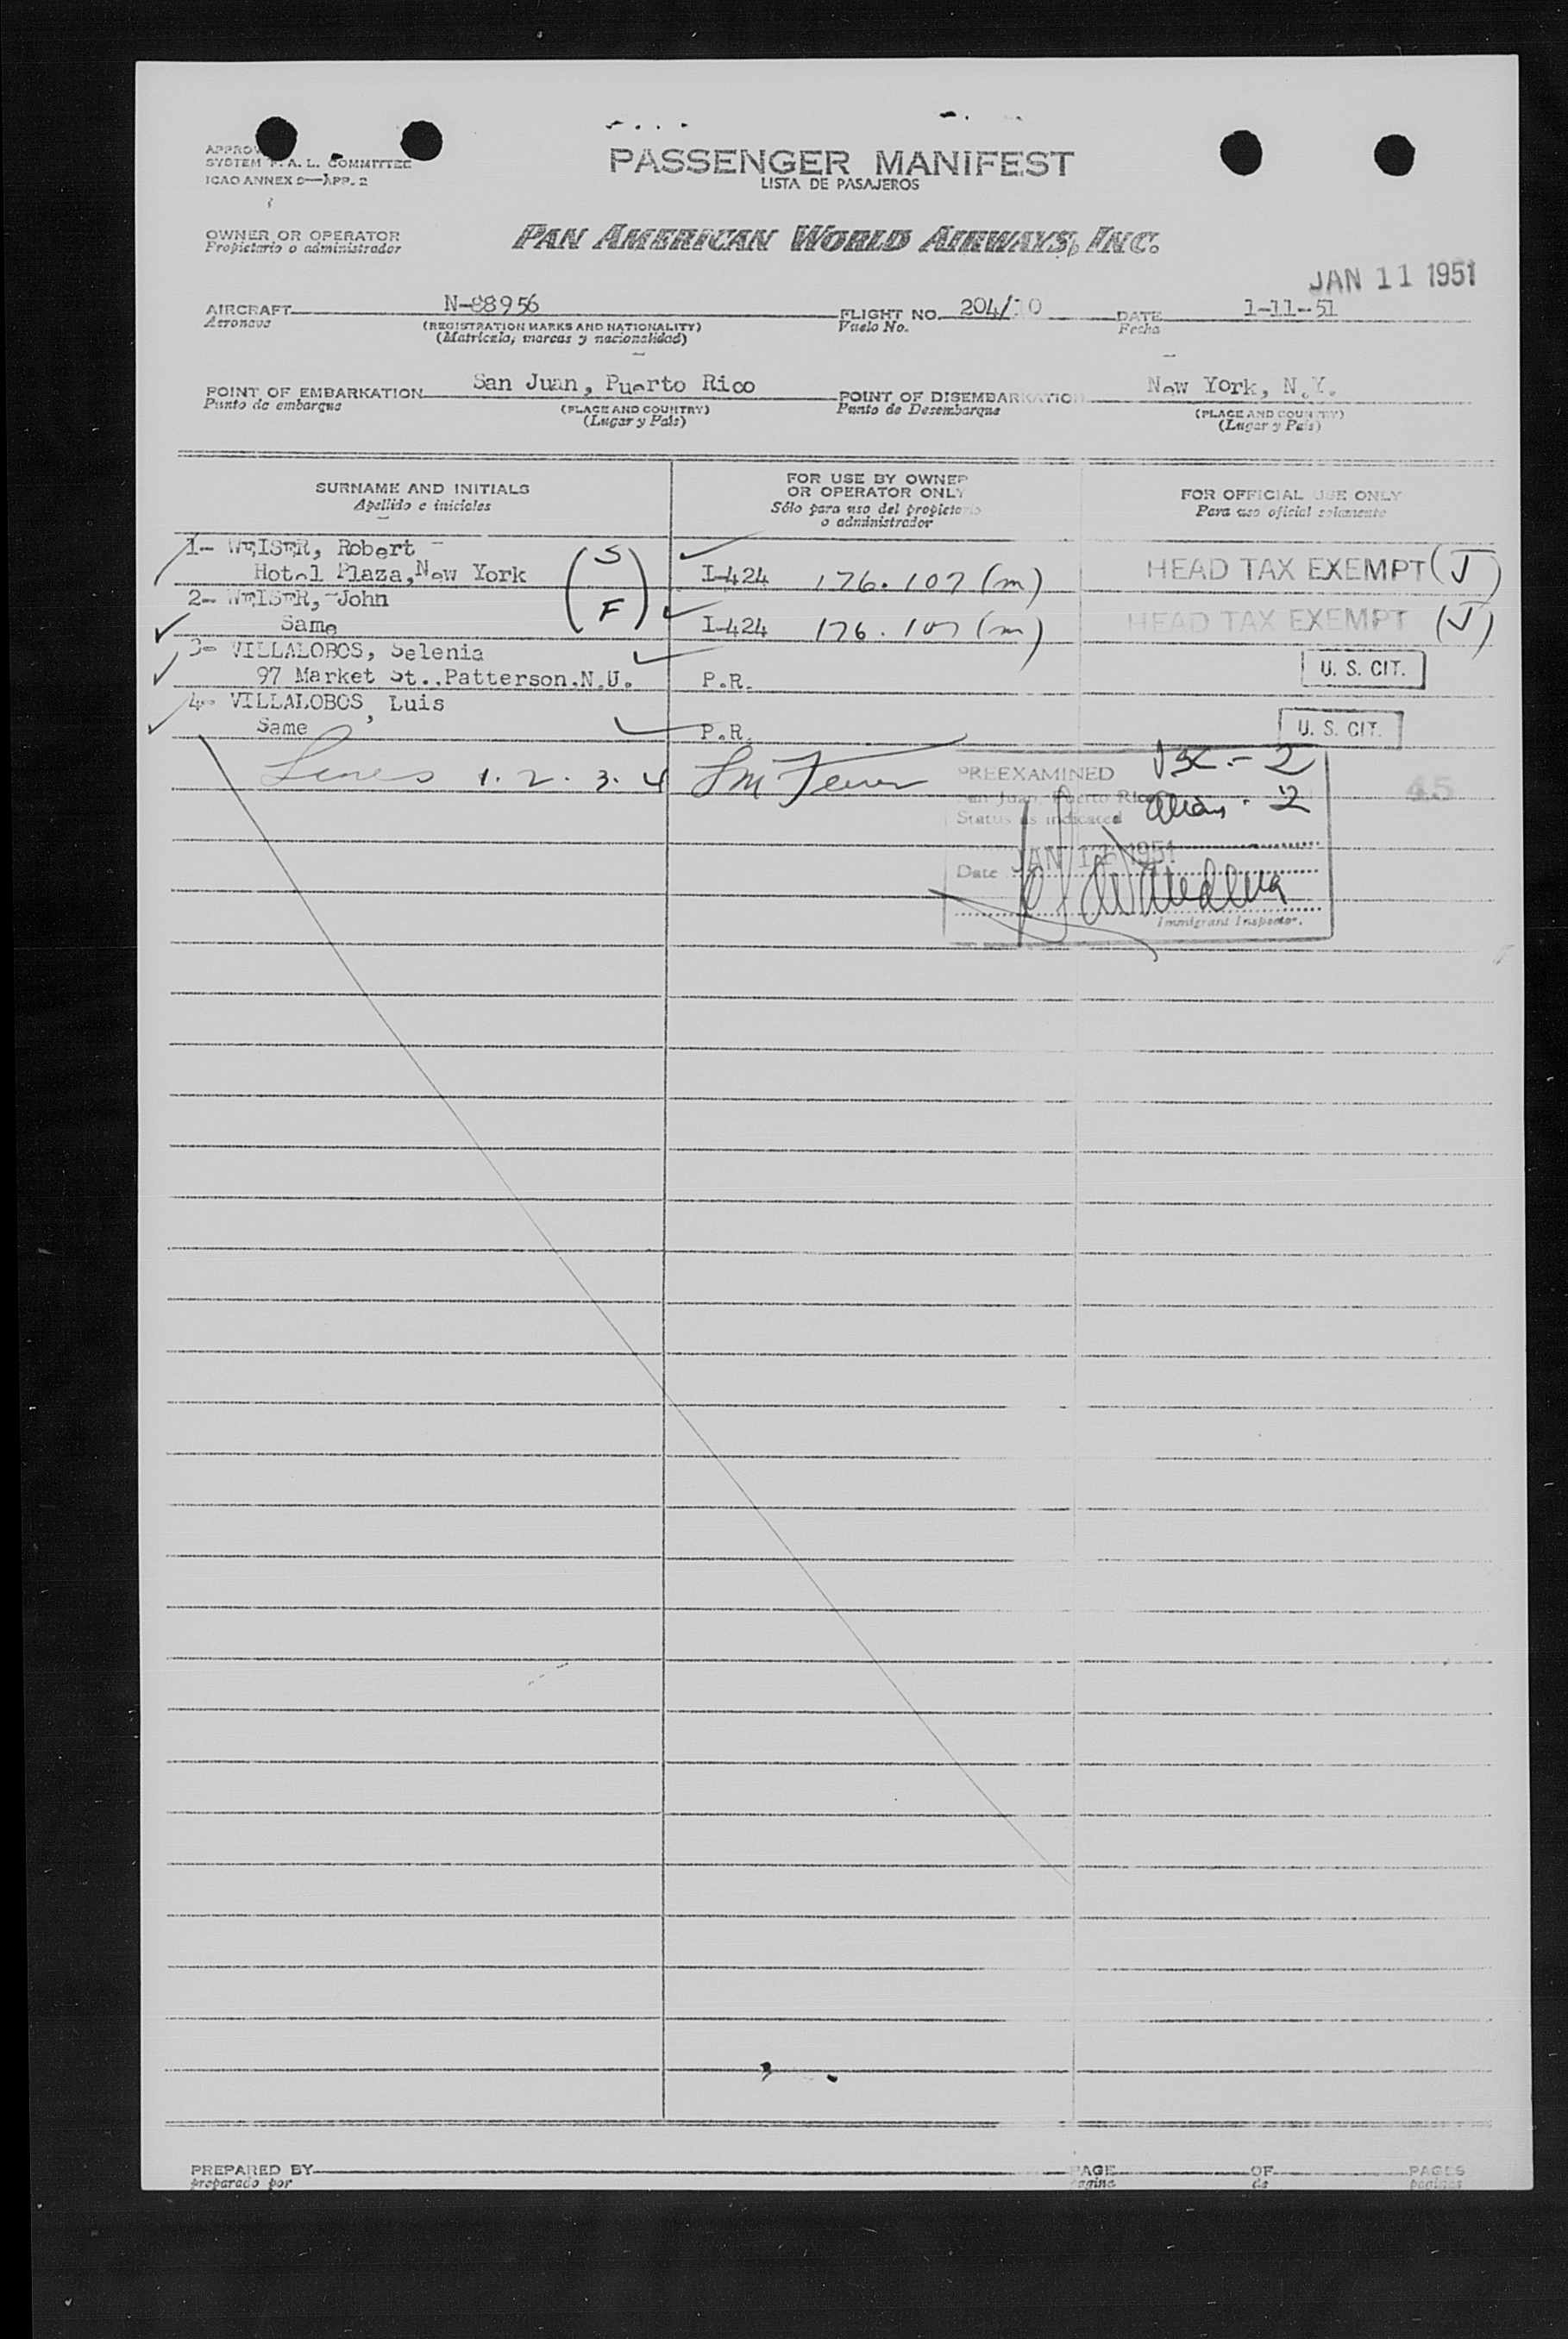 PASSENGER MANIFEST
LISTA DE PASAJEROS
SYSTEM F. A. L. COMMITTEE
ICAO ANNEX 9—APP. 2
OWNER OR OPERATOR
Propietario o administrador
PAN AMERICAN WORLD AIRWAYS, INC.
JAN 11 1951
AIRCRAFT N-88956 FLIGHT NO. 204/10 DATE 1-11-51
Aeronave (REGISTRATION MARKS AND NATIONALITY) Vuelo No. Fecha
(Matrícula, marcas y nacionalidad)
POINT OF EMBARKATION San Juan, Puerto Rico POINT OF DISEMBARKATION New York, N.Y.
Punto de embarque (PLACE AND COUNTRY) Punto de Desembarque (PLACE AND COUNTRY)
(Lugar y País) (Lugar y País)
SURNAME AND INITIALS
Apellido e iniciales
FOR USE BY OWNER
OR OPERATOR ONLY
Sólo para uso del propietario
o administrador
FOR OFFICIAL USE ONLY
Para uso oficial solamente
1- WEISER, Robert (S
Hotel Plaza, New York I-424 176.107 (m) HEAD TAX EXEMPT (J)
2- WEISER, John F)
Same I-424 176.107 (m) HEAD TAX EXEMPT (J)
3- VILLALOBOS, Selenia
97 Market St..Patterson.N.U. P.R. U. S. CIT.
4- VILLALOBOS, Luis
Same P.R. U. S. CIT.
Lines 1. 2. 3. 4
PREEXAMINED - 2
San Juan, Puerto Rico
Status as indicated Alias - 2
45
Date JAN 11 1951
Immigrant Inspector.
PREPARED BY PAGE OF PAGES
preparado por pagina de paginas